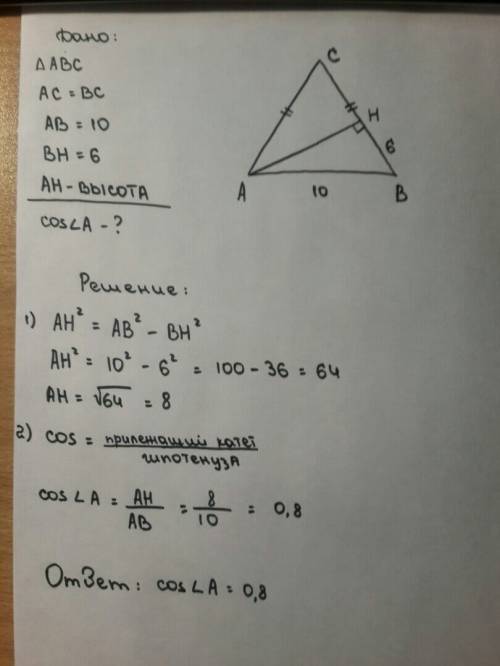 Дано:
△ABC
AC = BC
AB = 10
BH = 6
AH - ВЫСОТА
cos∠A - ?
C
H
6
A
10
B
Решение:
1) AH² = AB² - BH²
AH² = 10² - 6² = 100 - 36 = 64
AH = √64 = 8
2) cos = прилежащий катет / гипотенуза
cos∠A = AH/AB = 8/10 = 0,8
Ответ: cos∠A = 0,8